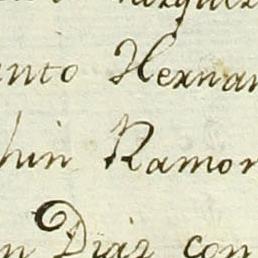 nto Hernan
hin Ramon
n Diaz con